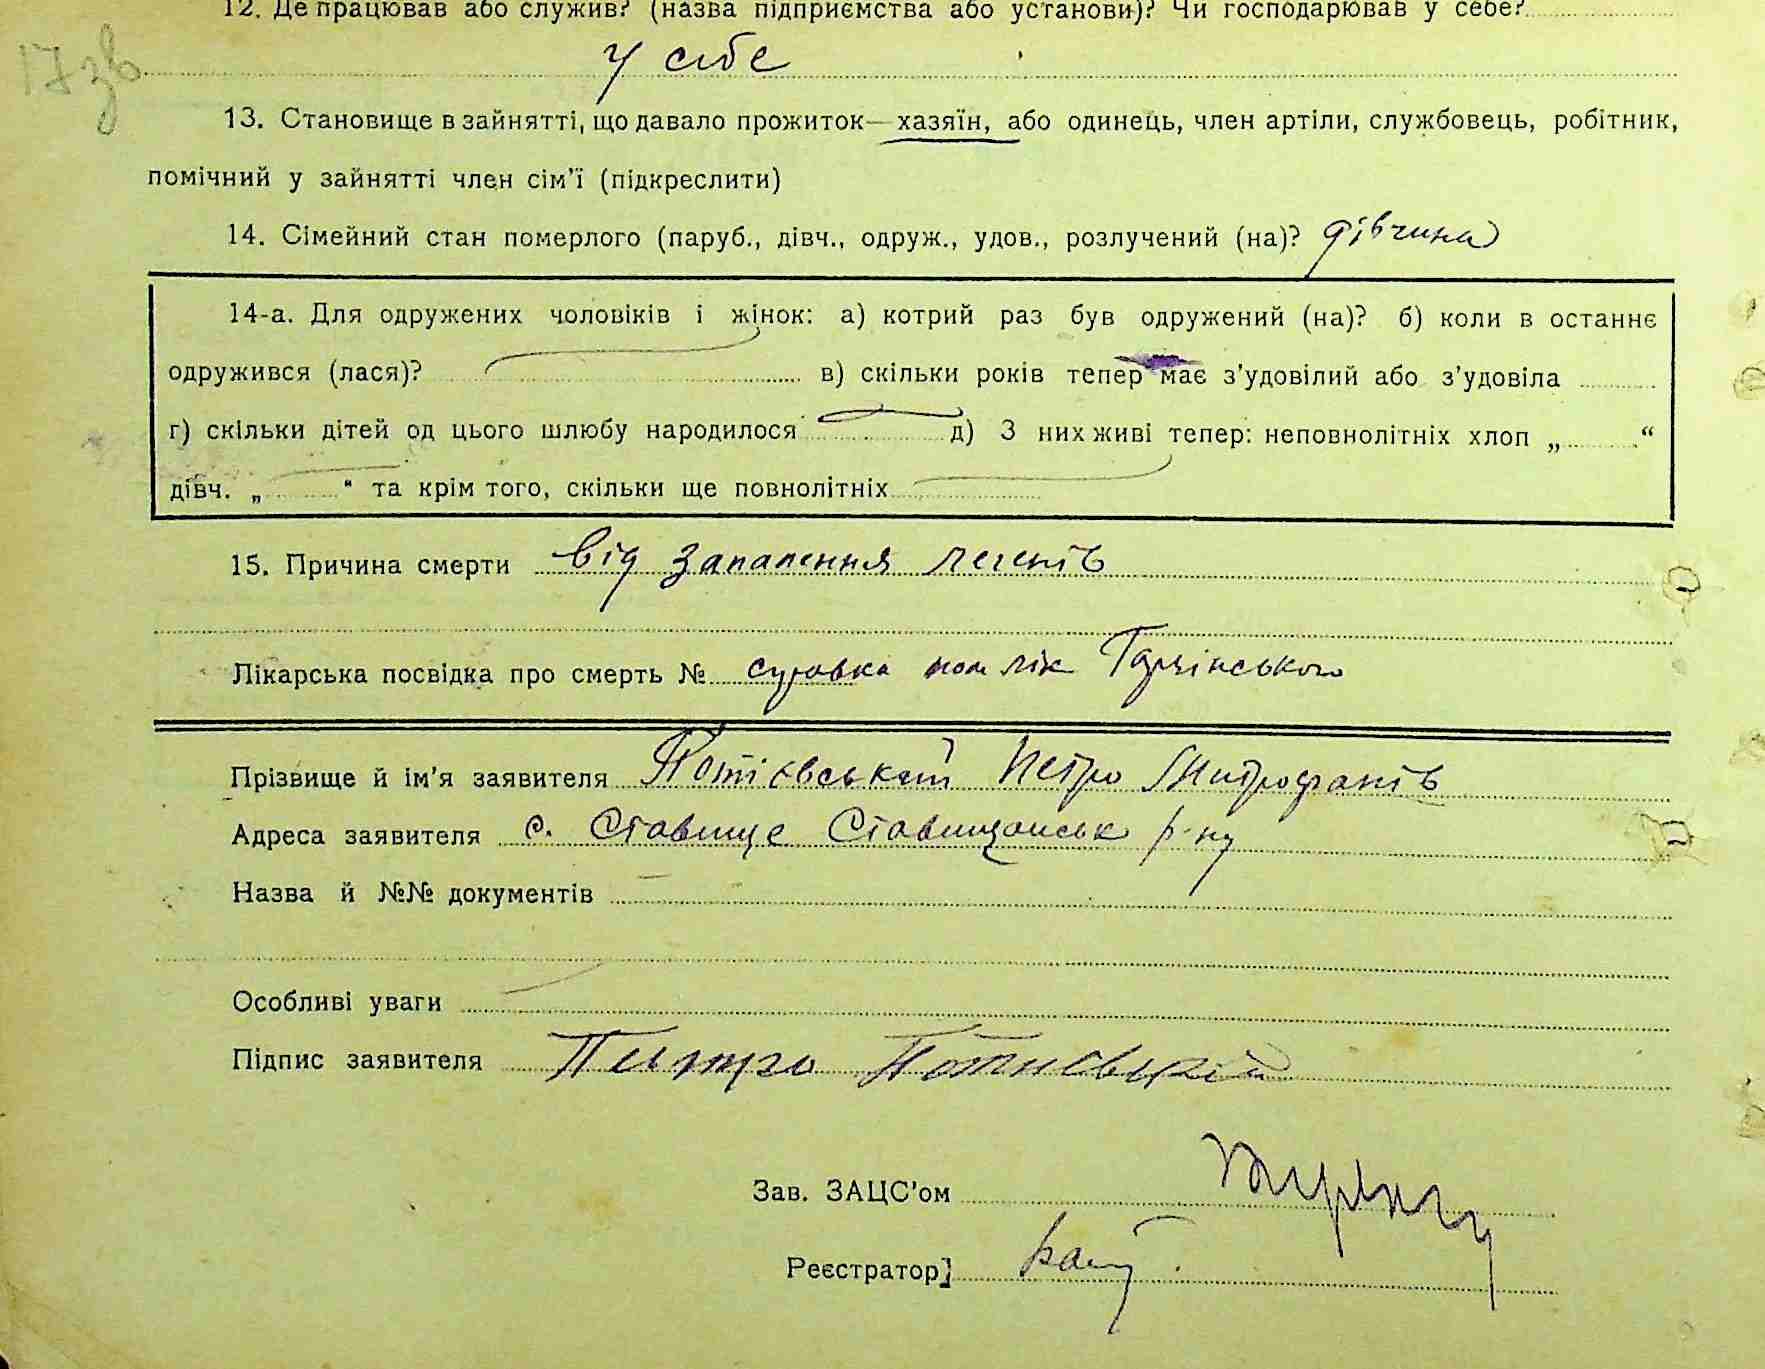 12. Де працював або служив? (назва підприємства або установи)? Чи господарював у себе?
17 зв
у себе
13. Становище в зайнятті, що давало прожиток— хазяїн, або одинець, член артіли, службовець, робітник,
помічний у зайнятті член сім'ї (підкреслити)
14. Сімейний стан померлого (паруб., дівч., одруж., удов., розлучений (на)? дівчина
14-а. Для одружених чоловіків і жінок: а) котрий раз був одружений (на)? б) коли в останнє
одружився (лася)? в) скільки років тепер має з'удовілий або з'удовіла
г) скільки дітей од цього шлюбу народилося д) З них живі тепер: неповнолітніх хлоп „ “
дівч. „ “ та крім того, скільки ще повнолітніх
15. Причина смерти від запалення легенів
Лікарська посвідка про смерть №
Прізвище й ім'я заявителя Потієвський Петро Митрофанів
Адреса заявителя с. Ставище Ставищанськ р-ну
Назва й №№ документів
Особливі уваги
Підпис заявителя Петро
Зав. ЗАЦС'ом
Реєстратор